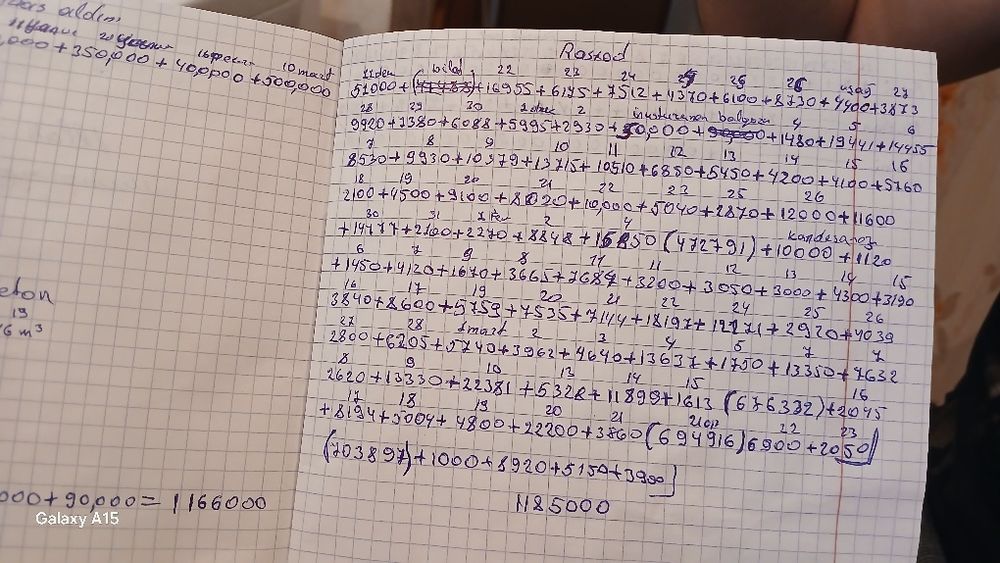 aldim
,000 + 350,000 + 400,000 + 500,000
10 mart
eton
19
6 m³
000 + 90,000 = 1166000
Galaxy A15
Rasxod
22 23 24 25 26 26 27
51000 + + 16955 + 6175 + 7512 + 4370 + 6100 + 8730 + 4400 + 3873
28 29 30 2 4 5 6
9920 + 7380 + 6088 + 5995 + 2930 + 50,000 + + 1480 + 19441 + 14455
7 8 9 10 11 12 13 14 15 16
8530 + 9930 + 10379 + 13715 + 10510 + 6850 + 5450 + 4200 + 4100 + 5760
18 19 20 21 22 23 25 26
2100 + 4500 + 9100 + 8020 + 10,000 + 5040 + 2870 + 12000 + 11600
30 31 2 4
+ 14777 + 2100 + 2270 + 8848 + 15850 (472791) + 10000 + 1120
6 7 9 8 11 11 12 13 14 15
+ 1450 + 4120 + 1670 + 3665 + 7687 + 3200 + 3050 + 3000 + 4300 + 3190
16 17 19 20 21 22 24 25 26
3840 + 8600 + 5759 + 7535 + 7144 + 18197 + 12271 + 2920 + 4039
27 28 1mart 2 3 4 5 7 7
2800 + 6205 + 5740 + 3962 + 4640 + 13637 + 1750 + 13350 + 7632
8 9 10 13 14 15 16
2620 + 13330 + 22381 + 5328 + 11899 + 1613 (676332) + 2045
17 18 19 20 21 22 23
+ 8194 + 5004 + 4800 + 22200 + 3860 (694916) 6900 + 2050]
(703897) + 1000 + 8920 + 5150 + 3900]
1185000